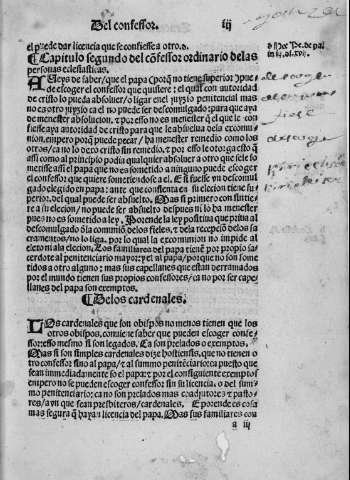 Del confessor. iij
el puede dar licencia que se confiesse a otro.
Capitulo segundo del cõfessor ordinario delas
personas eclesiasticas.
A Leys de saber/que el papa (porq̃ no tiene superior) pue
de escoger el confessor que quisiere: el qual con autoridad
de cristo lo pueda absoluer/o ligar enel juyzio penitencial mas
no a otro juyzio ca el no puede ser descomulgado: para que aya
de menester absolucion. y por esso no es menester q̃ el que le con
fiesse aya autoridad de cristo para que le absuelua dela excomu
nion. empero porq̃ puede pecar/ha menester remedio como los
otros/ca no lo dexo cristo sin remedio. por esso le otorga esto q̃
assi como al principio podia qualquier absoluer a otro que sele so
metiesse assi el papa que no es sometido a ninguno puede escoger
el confessor que quiere sometiendose a el. E si fuesse vn descomul
gado elegido en papa: ante que consienta en su elecion tiene su
perior. del qual puede ser absuelto. Mas si primero consintie
re a su elecion/no puede ser absuelto despues ni lo ha menester
pues no es sometido a ley. Porende la ley positiua que priua al
descomulgado dela comunion delos fieles/y dela recepciõ delos sa
cramentos/no lo liga. por lo qual la excomunion no impide al
eleto ni ala elecion. Los familiares del papa tienẽ por propio sa
cerdote al penitenciario mayor: y el al papa/porque no son some
tidos a otro alguno: mas sus capellanes que estan derramados
por el mundo tienen sus propios confessores/ca no por ser cape
llanes del papa son exemptos.
Delos cardenales.
LOs cardenales que son obispos no menos tienen que los
otros obispos. conuiene saber que pueden escoger confes
sor: esso mesmo si son legados. Ca son prelados o exemptos.
Mas si son simples cardenales dize hostiensis, que no tienen o
tro confessor sino al papa/y al summo penitẽciario: ca puesto que
sean inmediadamente so el papa: y por el consiguiente exemptos
enpero no se pueden escoger confessor sin su licencia. o del sum
mo penitenciario: ca no son prelados mas coadjutores y pasto
res/aun que sean presbiteros/cardenales. E porende es cosa
mas segura q̃ hayan licencia del papa. Mas sus familiares con
a iij